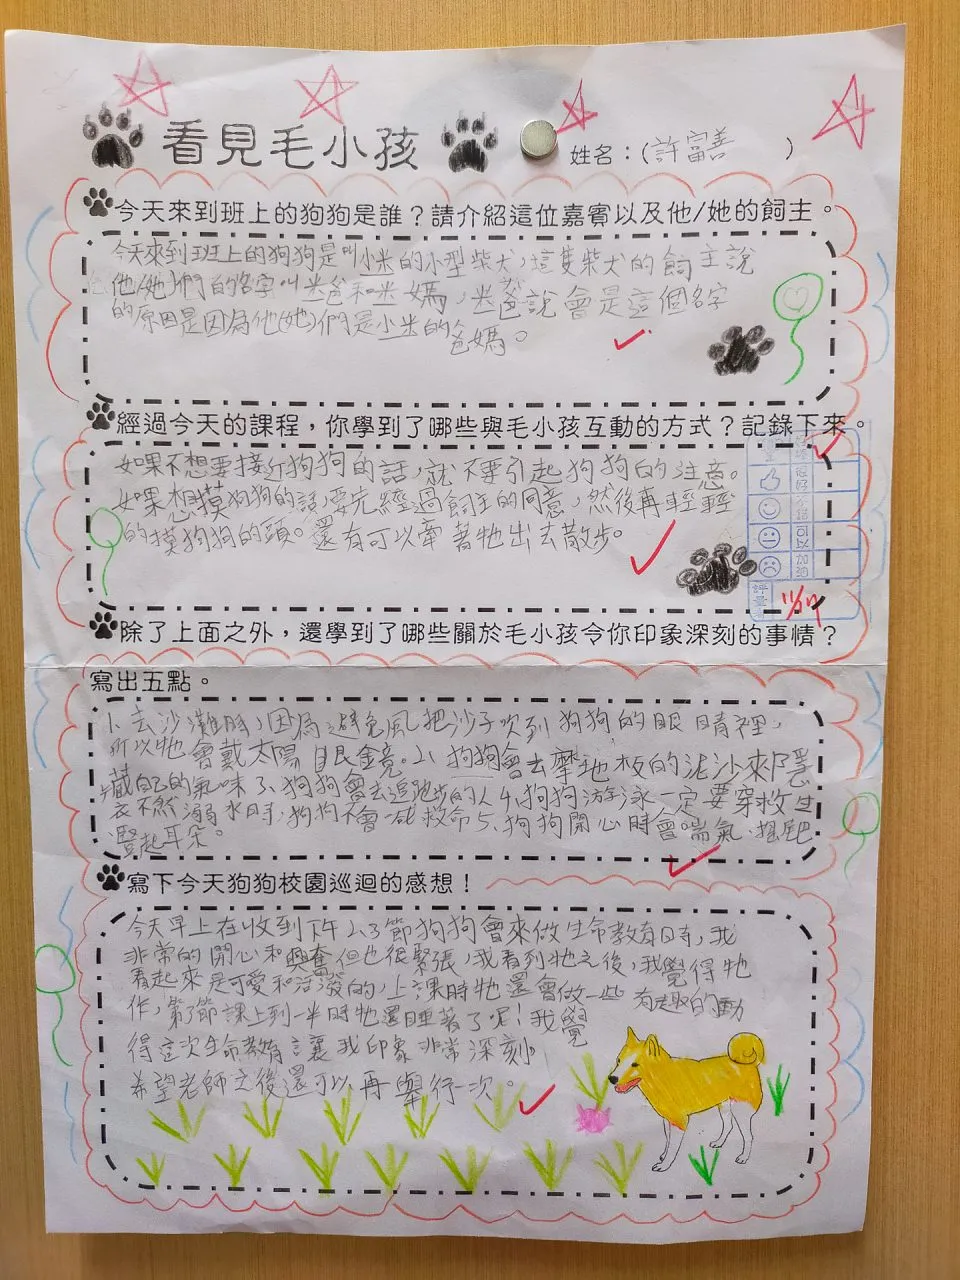 看見毛小孩
姓名：(許富善 )
今天來到班上的狗狗是誰？請介紹這位嘉賓以及他/她的飼主。
今天來到班上的狗狗是叫小米的小型柴犬，這隻柴犬的飼主說
他(她)們的名字叫米爸和米媽，米爸說會是這個名字
的原因是因為他(她)們是小米的爸媽。
經過今天的課程，你學到了哪些與毛小孩互動的方式？記錄下來。
如果不想要接近狗狗的話，就不要引起狗狗的注意。
如果想摸狗狗的話，要先經過飼主的同意，然後再輕輕
的摸狗狗的頭。還有可以牽著牠出去散步。
評量
11/27
除了上面之外，還學到了哪些關於毛小孩令你印象深刻的事情？
寫出五點。
1、去沙灘時，因為避免風把沙子吹到狗狗的眼睛裡，
所以牠會戴太陽眼鏡。2、狗狗會去摩地板的泥沙來隱
藏自己的氣味3、狗狗會去追跑步的人4、狗狗游泳一定要穿救生
衣不然溺水時，狗狗不會喊救命5、狗狗開心時會喘氣、搖尾巴
豎起耳朵。
寫下今天狗狗校園巡迴的感想！
今天早上在收到下午2、3節狗狗會來做生命教育時，我
非常的開心和興奮但也很緊張，我看到牠之後，我覺得牠
看起來是可愛和活潑的，上課時牠還會做一些有趣的動
作，第3節課上到一半時牠還睡著了呢！我覺
得這次生命教育讓我印象非常深刻，
希望老師之後還可以再舉行一次。